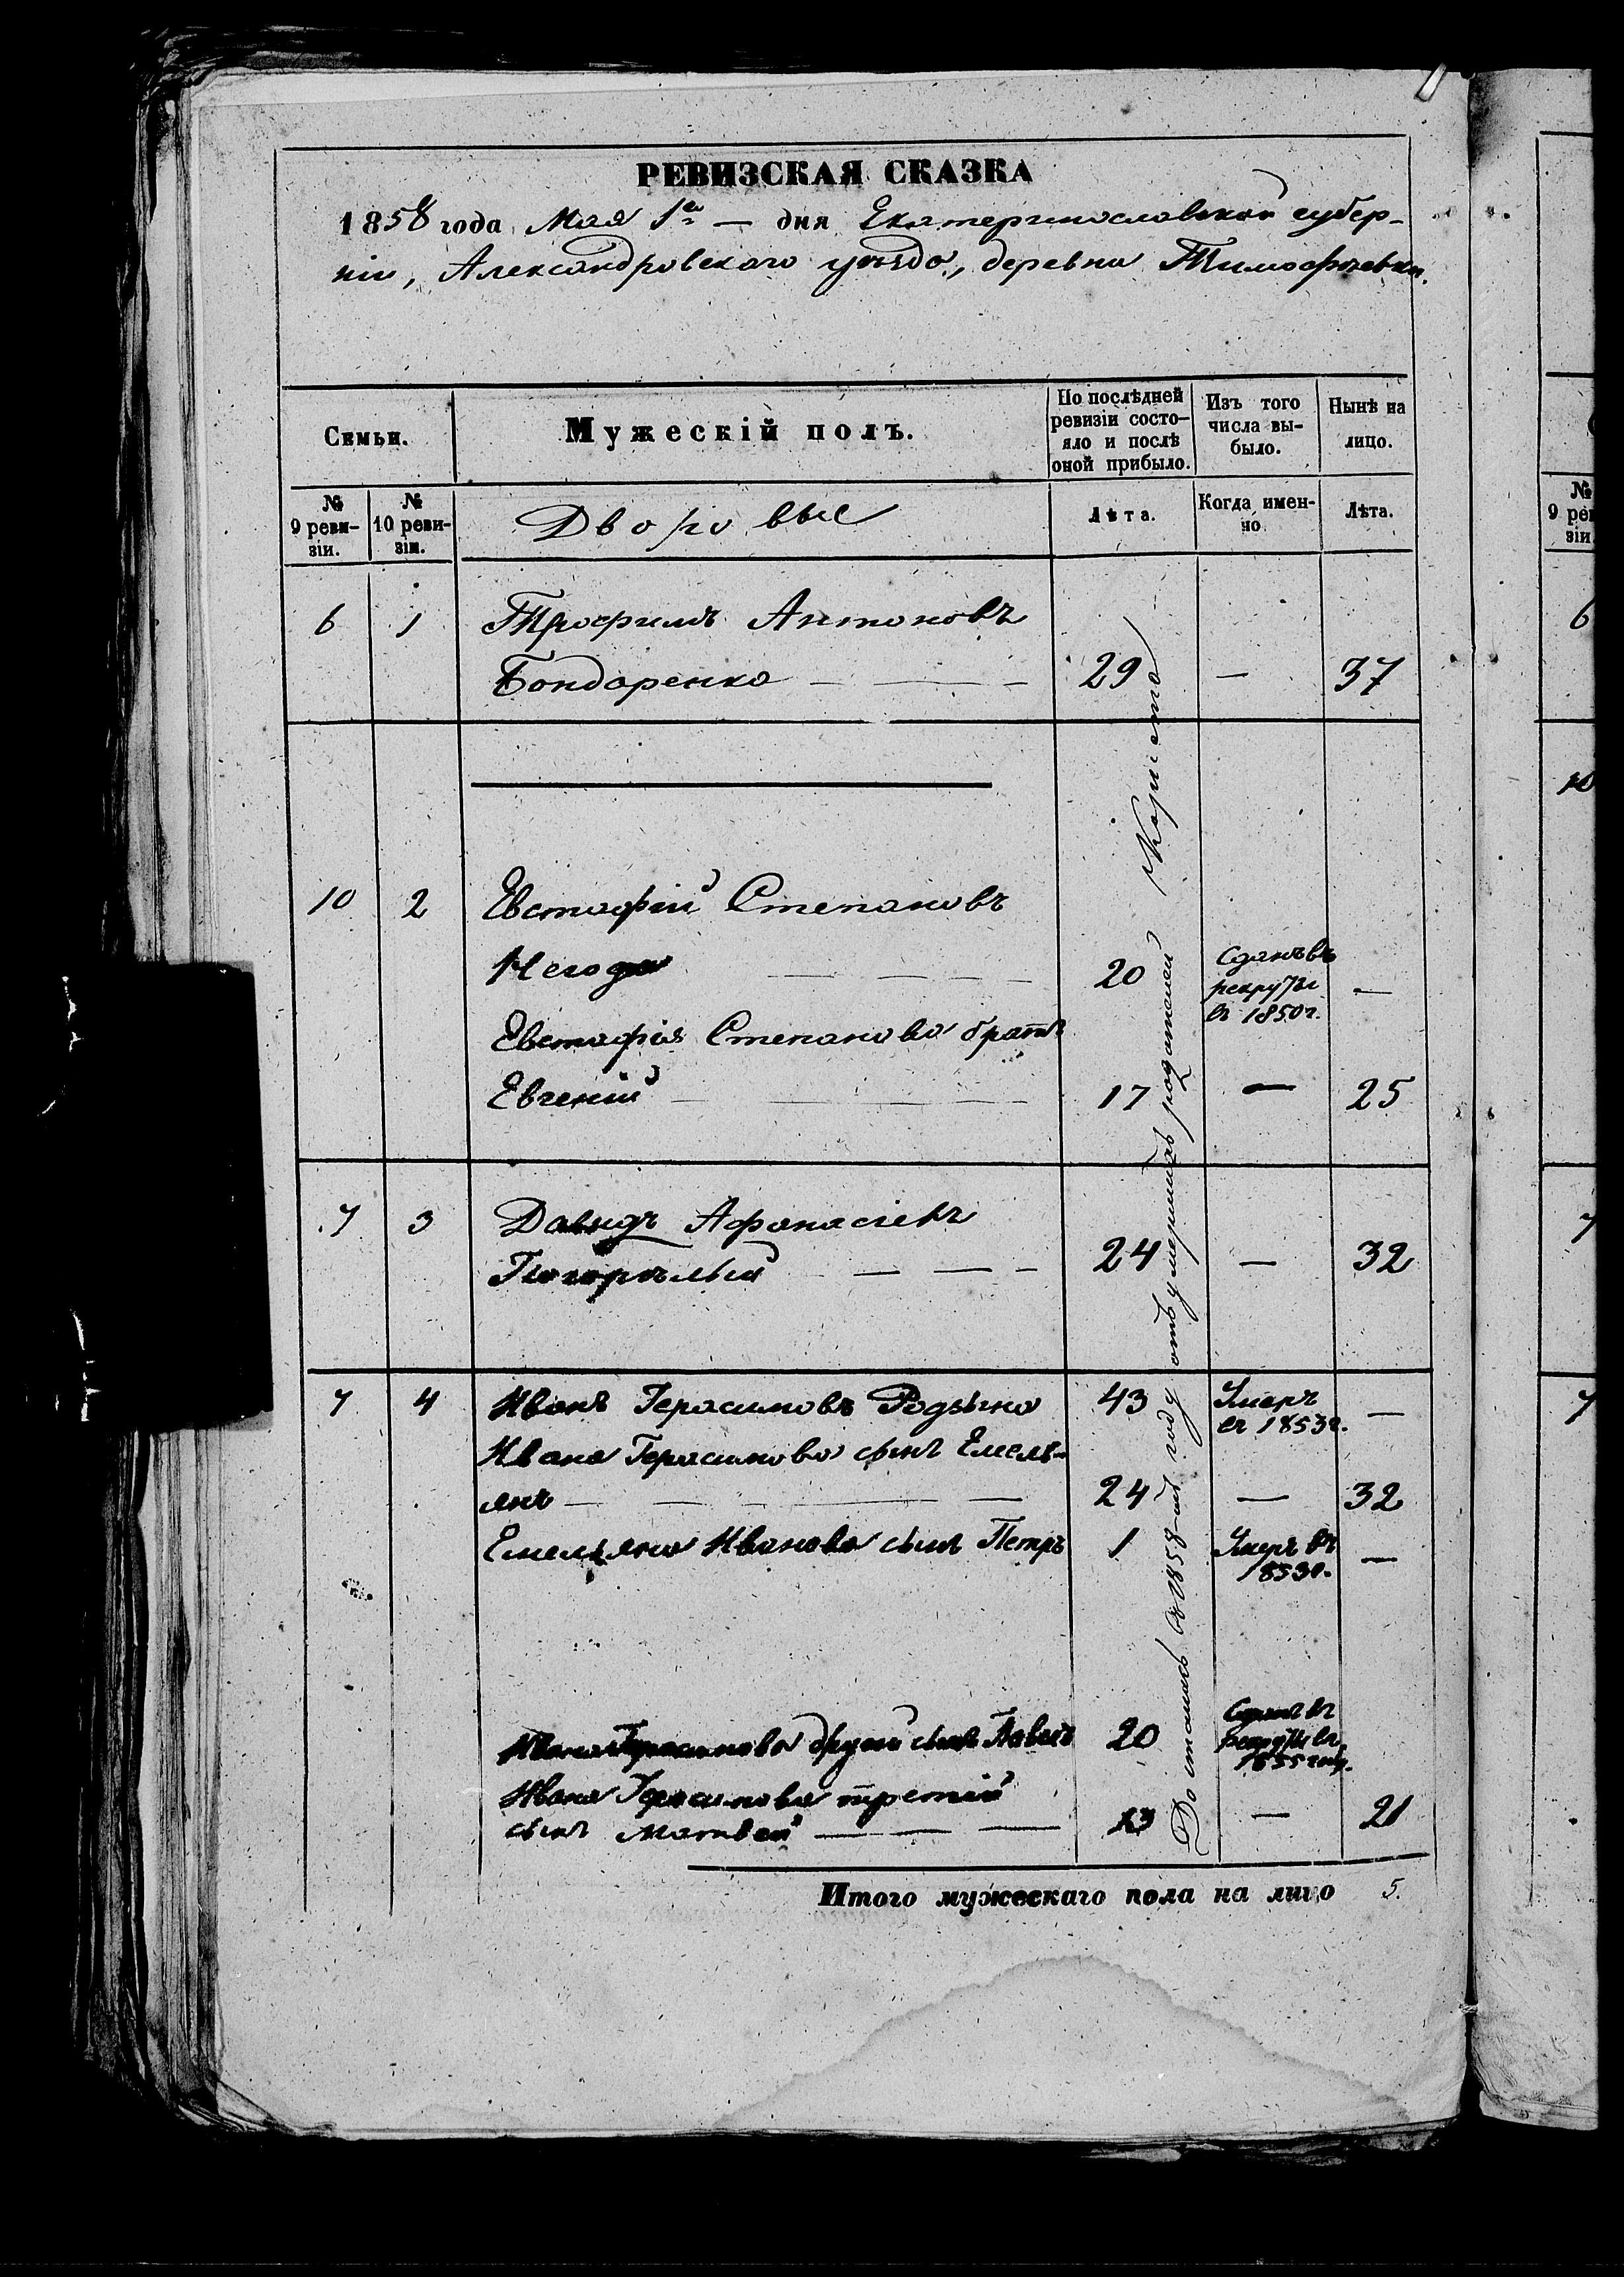 РЕВИЗСКАЯ СКАЗКА
1858 года Мая 1го — дня Екатеринославской губер-
ніи, Александровскаго уѣзда, деревни Тимофѣевки.
Семьи.
Мужескій полъ.
По послѣдней ревизіи состо-
яло и послѣ оной прибыло.
Изъ того числа вы-
было.
Нынѣ на лицо.
№ 9 реви-
зіи.
№ 10 реви-
зіи.
Дворовые
Лѣта.
Когда имен-
но.
Лѣта.
6 1 Трофимъ Антоновъ
Бондаренко — — — 29 — 37
10 2 Евстафій Степановъ
Негода — — — 20 Сданъ въ рекруты въ 1850 г. —
Евстафія Степанова братъ
Евгеній — — — 17 — 25
7 3 Давидъ Афанасіевъ
Погорѣлый — — — 24 — 32
7 4 Иванъ Герасимовъ Родына 43 Умеръ въ 1853 г. —
Ивана Герасимова сынъ Емель-
янъ — — — — 24 — 32
Емельяна Иванова сынъ Петръ 1 Умеръ въ 1853 г. —
Ивана Герасимова другой сынъ Павелъ 20 Сданъ въ рекруты въ 1855 году.
Ивана Герасимова третій
сынъ Матвей — — — 13 — 21
Достались въ 1858-мъ году отъ умершихъ родителей
Итого мужескаго пола на лицо 5.
№ 9 рев
зіи
6
10
7
7